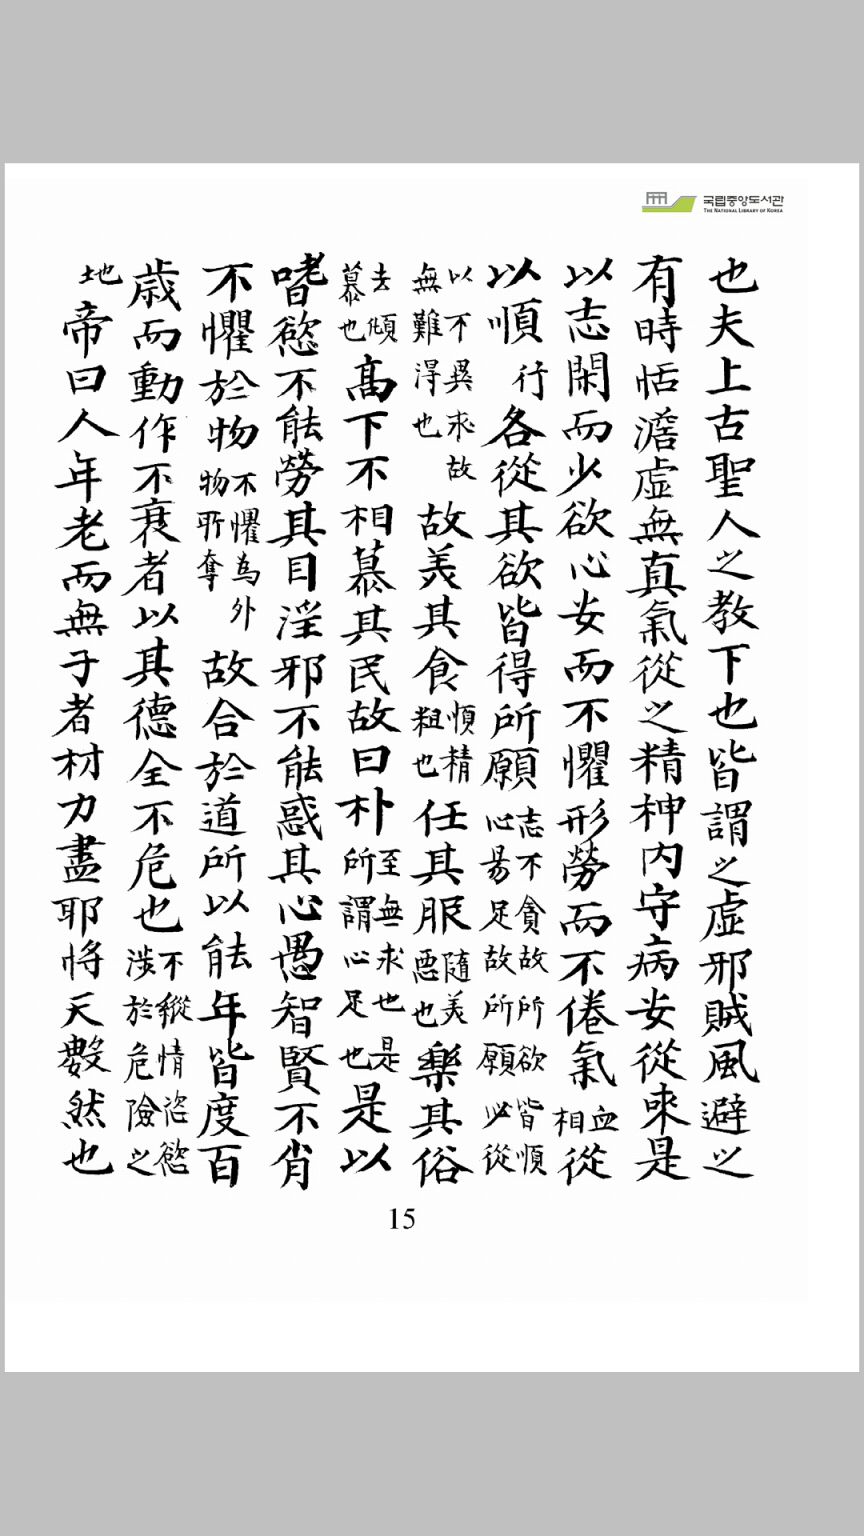 국립중앙도서관
THE NATIONAL LIBRARY OF KOREA
也夫上古聖人之教下也皆謂之虛邪賊風避之
有時恬澹虛無真氣從之精神内守病安從來是
以志閑而少欲心安而不懼形勞而不倦氣血相從
以順行各從其欲皆得所願志不貪故所欲皆順心易足故所願必從
以不異求故無難得也故美其食順精粗也任其服隨美惡也樂其俗
去傾慕也高下不相慕其民故曰朴至無求也是所謂心足也是以
嗜慾不能勞其目淫邪不能惑其心愚智賢不肖
不懼於物不懼為外物所奪故合於道所以能年皆度百
歲而動作不衰者以其德全不危也不縱情恣慾涉於危險之
地帝曰人年老而無子者材力盡耶將天數然也
15